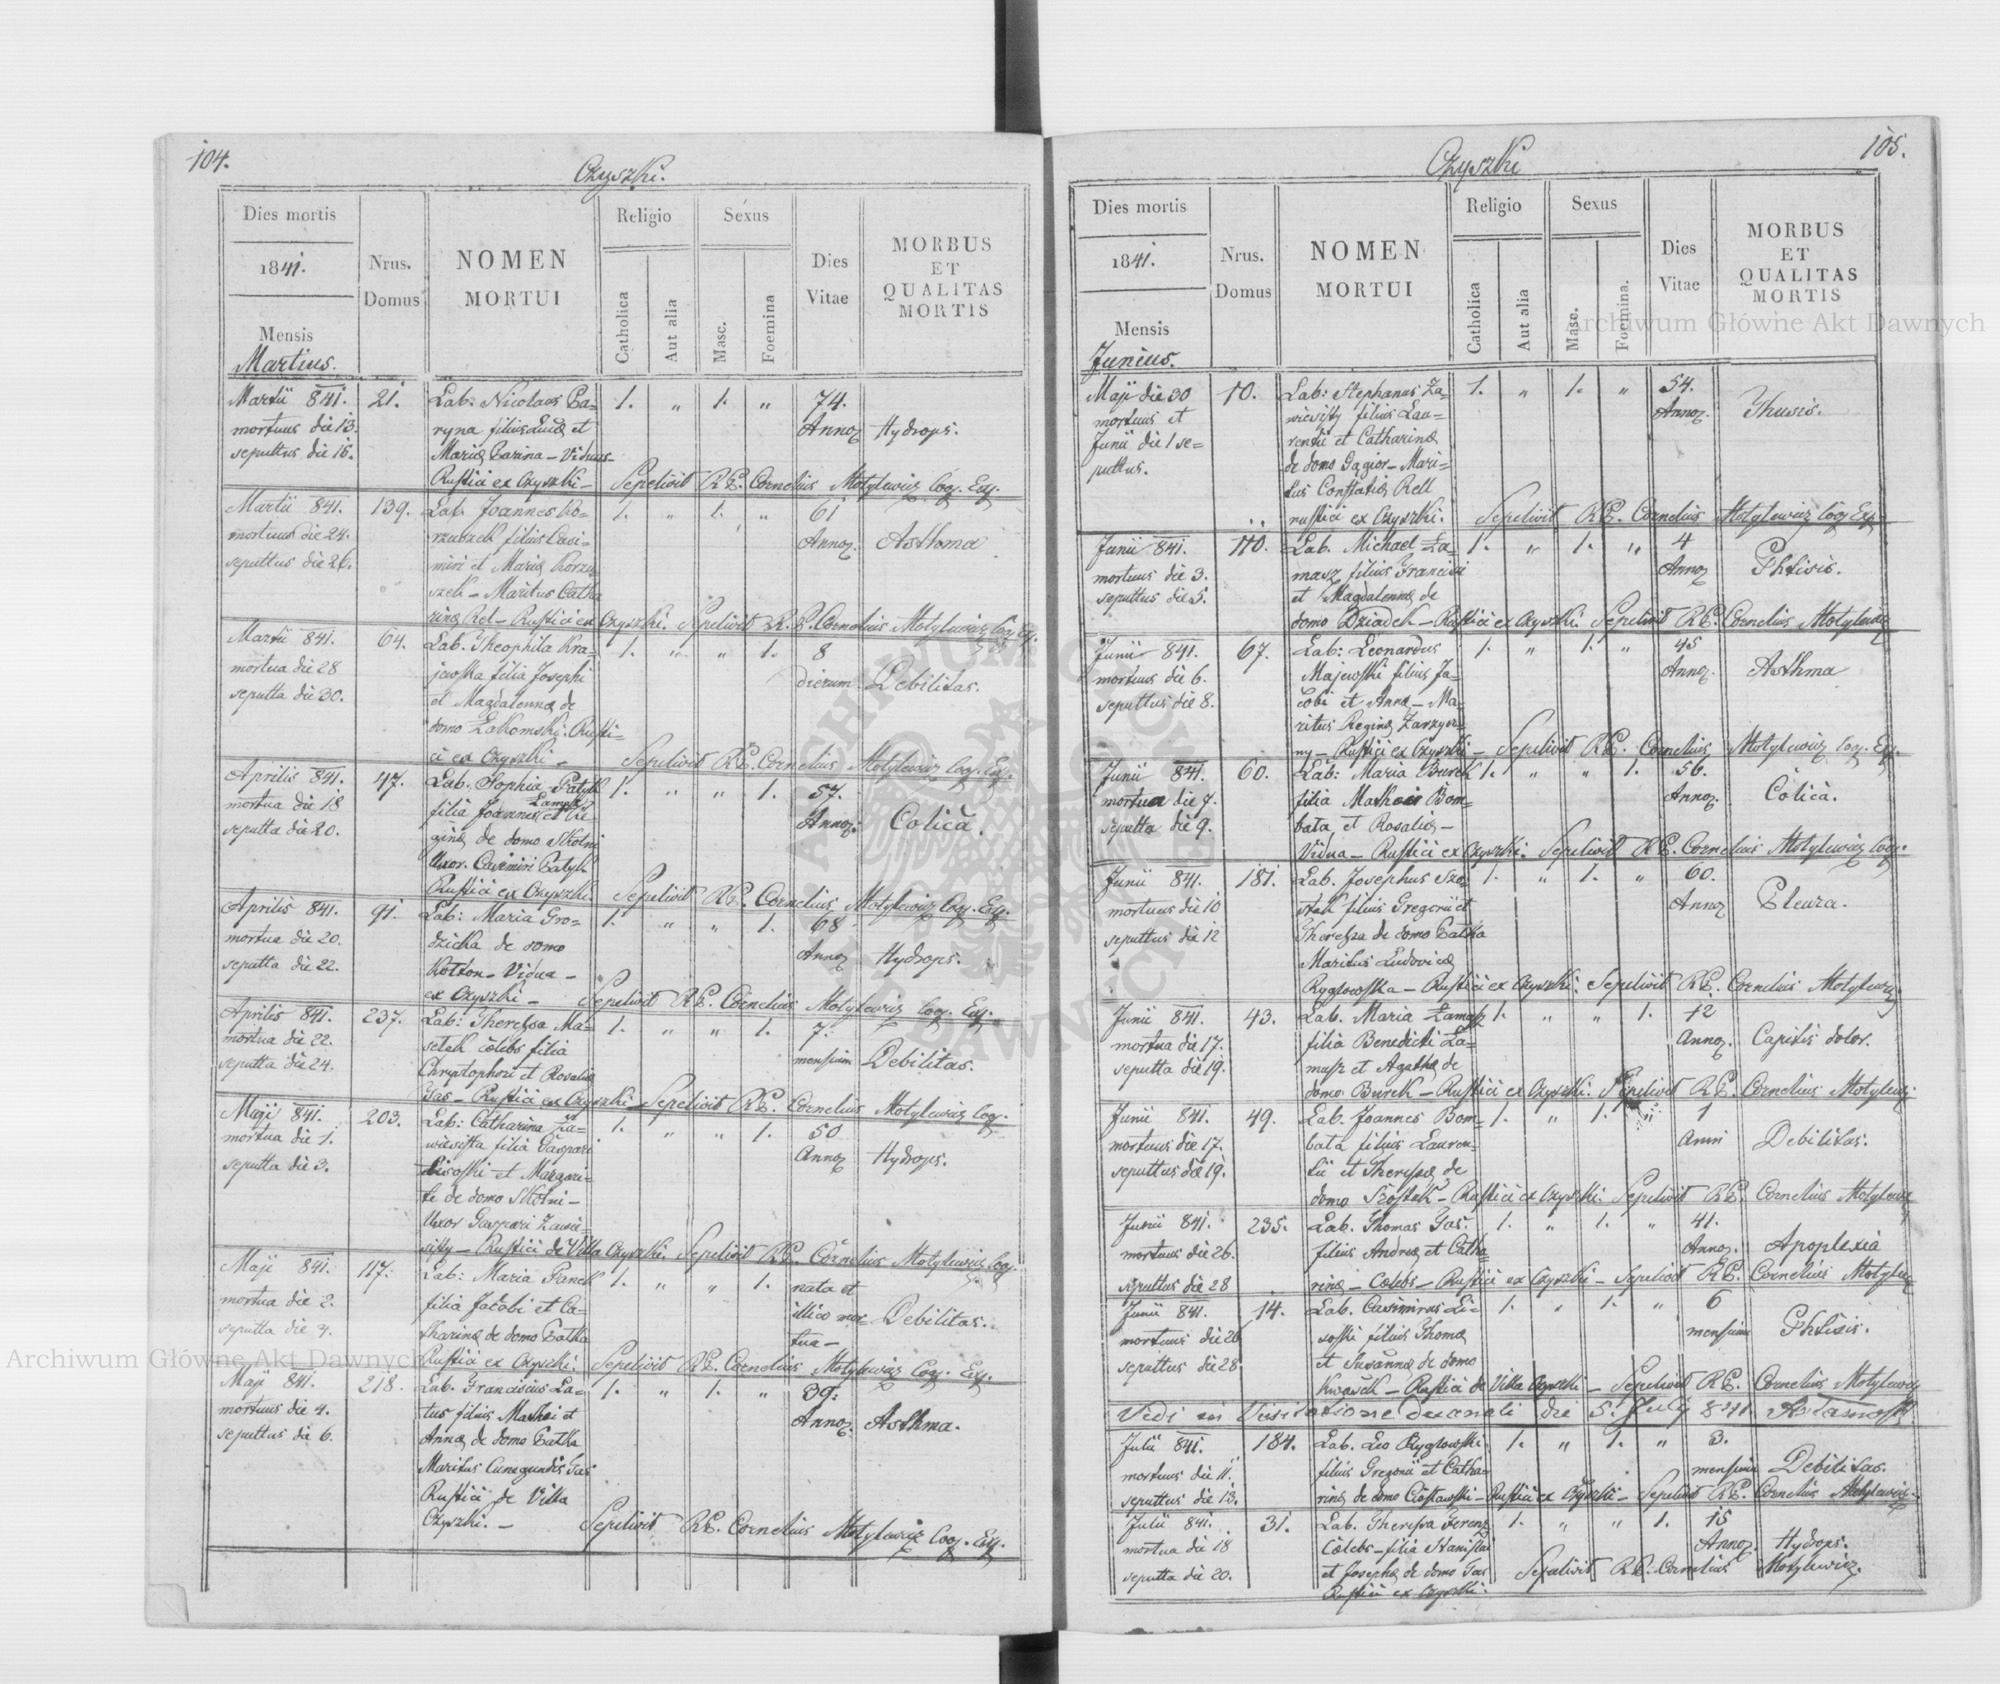 104.
Czyszki.
Dies mortis
1841.
Mensis
Martius.
Nrus.
Domus
NOMEN
MORTUI
Religio
Catholica
Aut alia
Sexus
Masc.
Foemina
Dies
Vitae
MORBUS
ET
QUALITAS
MORTIS
Martii 841. 21. Lab: Nicolaus Ba= 1. „ 1. „ 74.
mortuus die 13. ryna filius Lucæ et Annoꝝ Hydrops.
sepultus die 15. Mariæ Barina – Viduus–
Rustici ex Czyszki – Sepelivit R.P. Cornelius Motylewicz Coop. Exp.
Martii 841. 139. Lab. Joannes Ko= 1. „ 1. „ 61
mortuus die 24. rzuszek filius Casi= Annoꝝ. Asthma
sepultus die 26. miri et Mariæ Korzu
szek – Maritus Catha
rinæ Rel – Rustici ex Czyszki. Sepelivit R.P. Cornelius Motylewicz Coop. Exp.
Martii 841. 64. Lab. Theophila Kra= 1. „ „ 1. 8
mortua die 28 jewska filia Josephi dierum Debilitas.
sepulta die 30. et Magdalennæ de
domo Żakomski. Rusti=
ci ex Czyszki – Sepelivit R.P. Cornelius Motylewicz Coop. Exp.
Aprilis 841. 47. Lab. Sophia Patyk 1. „ „ 1. 57.
mortua die 18 filia Joannis et Re Annoꝝ. Colica.
sepulta die 20. ginæ de domo Skotni
Uxor Casimiri Batyk
Rustici ex Czyszki. Sepelivit R.P. Cornelius Motylewicz Coop. Exp.
Aprilis 841. 91. Lab: Maria Gro= 1. „ „ 1. 68
mortua die 20. dzicka de domo Annoꝝ Hydrops.
sepulta die 22. Kotton – Vidua –
ex Czyszki – Sepelivit R.P. Cornelius Motylewicz Coop. Exp.
Aprilis 841. 237. Lab: Theressa Ma= 1. „ „ 1. 7.
mortua die 22. setek cœlebs filia mensium Debilitas.
sepulta die 24. Chrystophori et Rosaliæ
Gas – Rustici ex Czyszki – Sepelivit R.P. Cornelius Motylewicz Coop.
Maji 841. 203. Lab: Catharina Za= 1. „ „ 1. 50
mortua die 1. wiesitta filia Gaspari Annoꝝ Hydrops.
sepulta die 3. Lisoski et Margari=
te de domo Skotni –
Uxor Gaspari Zawie=
sitty – Rustici de Villa Czyszki. Sepelivit R.P. Cornelius Motylewicz Coop.
Maji 841. 117. Lab: Maria Panek 1. „ „ 1. nata et
mortua die 2. filia Jacobi et Ca= illico mor= Debilitas.
sepulta die 4. tharinæ de domo Batka tua –
Rustici ex Czyszki. Sepelivit R.P. Cornelius Motylewicz Coop. Exp.
Maji 841. 218. Lab. Franciscus La= 1. „ 1. „ 39.
mortuus die 4. tus filius Mathei et Annoꝝ. Asthma.
sepultus die 6. Annæ de domo Batka
Maritus Cunegundis Gas
Rustici de Villa
Czyszki. – Sepelivit R.P. Cornelius Motylewicz Coop. Exp.
105.
Czyszki
Dies mortis
1841.
Mensis
Junius.
Nrus.
Domus
NOMEN
MORTUI
Religio
Catholica
Aut alia
Sexus
Masc.
Foemina.
Dies
Vitae
MORBUS
ET
QUALITAS
MORTIS
Maji die 30 10. Lab: Stephanus Za= 1. „ 1. „ 54.
mortuus et wiesitty filius Lau= Annoꝝ. Thusis.
Junii die 1 se= rentii et Catharinæ
pultus. de domo Gągior – Mari=
tus Constatiæ Rell
rustici ex Czyszki. Sepelivit R.P. Cornelius Motylewicz Coop Exp
Junii 841. 110. Lab. Michael Ła= 1. „ 1. „ 4
mortuus die 3. masz filius Francisci Annoꝝ Phtisis.
sepultus die 5. et Magdalennæ de
domo Dziadek – Rustici ex Czyszki. Sepelivit R.P. Cornelius Motylewicz
Junii 841. 67. Lab: Leonardus 1. „ 1. „ 45
mortuus die 6. Majewski filius Ja= Annoꝝ. Asthma
sepultus die 8. cobi et Annæ – Ma=
ritus Reginæ Zarzycz=
ny – Rustici ex Czyszki – Sepelivit R.P. Cornelius Motylewicz Coop. Exp.
Junii 841. 60. Lab: Maria Burek 1. „ „ 1. 56.
mortua die 7. filia Mathei Bom= Annoꝝ. Colica.
sepulta die 9. bata et Rosaliæ –
Vidua – Rustici ex Czyszki. Sepelivit R.P. Cornelius Motylewicz Coop.
Junii 841. 181. Lab. Josephus Szo= 1. „ 1. „ 60.
mortuus die 10 stak filius Gregorii et Annoꝝ Pleura.
sepultus die 12 Theressa de domo Batka
Maritus Ludovicæ
Ryglowska – Rustici ex Czyszki. Sepelivit R.P. Cornelius Motylewicz
Junii 841. 43. Lab. Maria Łamasz 1. „ „ 1. 12
mortua die 17. filia Benedicti Ła= Annoꝝ. Capitis dolor.
sepulta die 19. masz et Agathæ de
domo Burek – Rustici ex Czyszki. Sepelivit R.P. Cornelius Motylewicz
Junii 841. 49. Lab. Joannes Bom= 1. „ 1. 1
mortuus die 17. bata filius Lauren= Anni Debilitas.
sepultus die 19. tii et Theressæ de
domo Szostak – Rustici ex Czyszki. Sepelivit R.P. Cornelius Motylewicz
Junii 841. 235. Lab. Thomas Gas. 1. „ 1. „ 41.
mortuus die 26. filius Andreæ et Catha= Annoꝝ. Apoplexia
sepultus die 28 rinæ – Cœlebs – Rustici ex Czyszki – Sepelivit R.P. Cornelius Motylew
Junii 841. 14. Lab. Casimirus Li= 1. „ 1. „ 6
mortuus die 26 soski filius Thomæ mensium Phtisis.
sepultus die 28 et Susannæ de domo
Kwaśek – Rustici de Villa Czyszki – Sepelivit R.P. Cornelius Motylewicz
Vidi in Visitatione decanali die 5. July 841.
Julii 841. 184. Lab. Leo Ryglowski 1. „ 1. „ 3.
mortuus die 11. filius Gregorii et Catha= mensium Debilitas.
sepultus die 13. rinæ de domo Ciostowski – Rustici ex Czyszki – Sepelivit R.P. Cornelius Motylewicz
Julii 841. 31. Lab. Theressa Ferenz 1. „ „ 1. 15
mortua die 18 Cœlebs – filia Stanislai Annoꝝ. Hydrops.
sepulta die 20. et Josephæ de domo Gas Sepelivit R.P. Cornelius Motylewicz.
Rustici ex Czyszki.
Archiwum Główne Akt Dawnych
Archiwum Główne Akt Dawnych